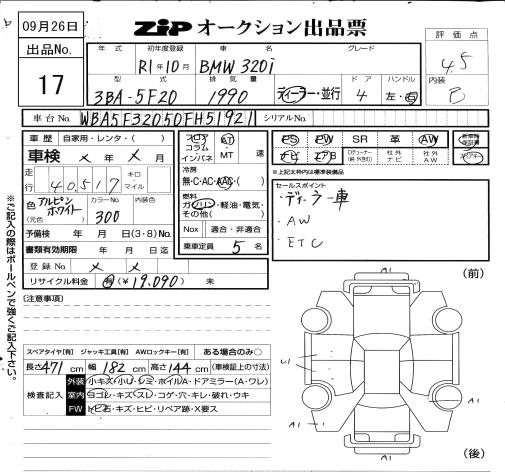 09月26日
出品No.
17
ZIP オークション出品票
評価点
4.5
内装
B
年式 初年度登録 車名 グレード
R1年10月 BMW 320i
型式 排気量 ドア ハンドル
3BA-5F20 1990 ディーラー・並行 4 左・右
車台No. WBA5F32050FH51921 シリアルNo.
車歴 自家用・レンタ・( )
車検 × 年 × 月
走行 40,517 キロ・マイル
色(元色) アルピンホワイト カラーNo. 300 内装色
予備検 年 月 日(3・8)No.
書類有効期限 年 月 日迄
登録No. × ×
リサイクル料金 有(¥19,090) 未
フロア コラム インパネ AT・MT 速
冷房
無・C・AC・AAC・( )
燃料
ガソリン・軽油・電気・その他( )
Nox 適合・非適合
乗車定員 5 名
PS PW SR 革 AW
ナビ エアB 社外ナビ 社外AW
★上記ネーム枠内は標準装備品
セールスポイント
・ディーラー車
・AW
・ETC
※ご記入の際はボールペンで強くご記入下さい。
(注意事項)
スペアタイヤ[有] ジャッキ工具[有] AWロックキー[有] ある場合のみ○
長さ471cm 幅182cm 高さ144cm (車検証上の寸法)
検査記入
外装 小キズ・小U・シミ・ホイルA・ドアミラー(A・ワレ)
室内 ヨゴレ・キズ・スレ・コゲ・穴・キレ・破れ・ウキ
FW トビ石・キズ・ヒビ・リペア跡・X要ス
(前)
A1
U1
A1
A1
A1
(後)